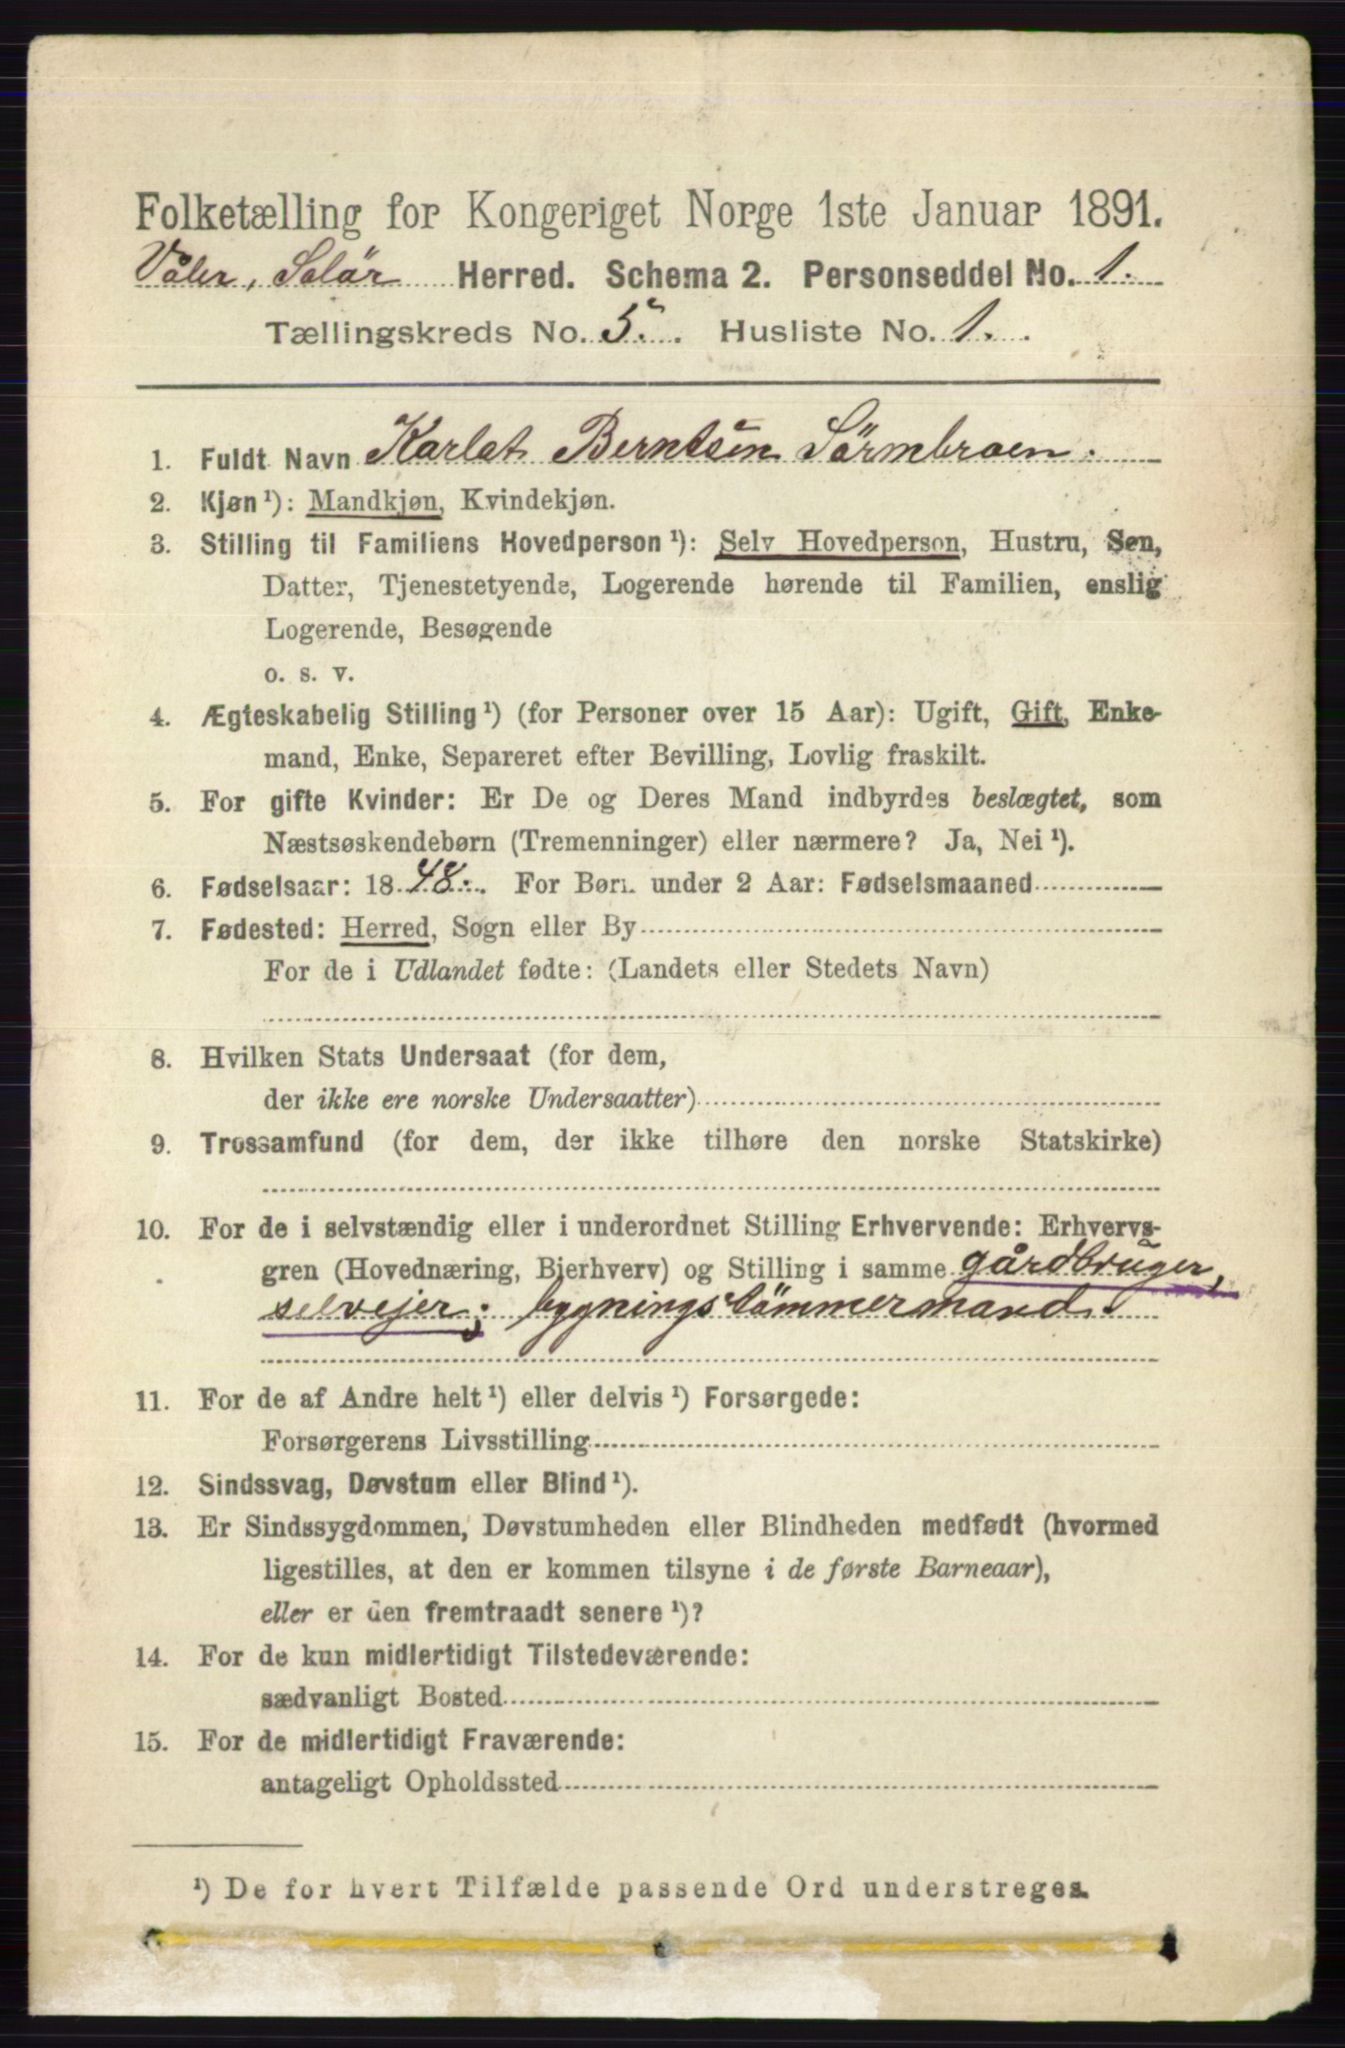 Folketælling for Kongeriget Norge 1ste Januar 1891.
Våler, Solör Herred. Schema 2. Personseddel No. 1.
Tællingskreds No. 5. Husliste No. 1.
1. Fuldt Navn Karlot Berntsen Sörmbroen.
2. Kjøn¹): Mandkjøn, Kvindekjøn.
3. Stilling til Familiens Hovedperson¹): Selv Hovedperson, Hustru, Søn,
Datter, Tjenestetyende, Logerende hørende til Familien, enslig
Logerende, Besøgende
o. s. v.
4. Ægteskabelig Stilling¹) (for Personer over 15 Aar): Ugift, Gift, Enke-
mand, Enke, Separeret efter Bevilling, Lovlig fraskilt.
5. For gifte Kvinder: Er De og Deres Mand indbyrdes beslægtet, som
Næstsøskendebørn (Tremenninger) eller nærmere? Ja, Nei¹).
6. Fødselsaar: 1848. For Børn under 2 Aar: Fødselsmaaned
7. Fødested: Herred, Sogn eller By
For de i Udlandet fødte: (Landets eller Stedets Navn)
8. Hvilken Stats Undersaat (for dem,
der ikke ere norske Undersaatter)
9. Trossamfund (for dem, der ikke tilhøre den norske Statskirke)
10. For de i selvstændig eller i underordnet Stilling Erhvervende: Erhvervs-
gren (Hovednæring, Bierhverv) og Stilling i samme gårdbruger,
selvejer; bygningstömmermand.
11. For de af Andre helt¹) eller delvis¹) Forsørgede:
Forsørgerens Livsstilling
12. Sindssvag, Døvstum eller Blind¹).
13. Er Sindssygdommen, Døvstumheden eller Blindheden medfødt (hvormed
ligestilles, at den er kommen tilsyne i de første Barneaar),
eller er den fremtraadt senere¹)?
14. For de kun midlertidigt Tilstedeværende:
sædvanligt Bosted
15. For de midlertidigt Fraværende:
antageligt Opholdssted
¹) De for hvert Tilfælde passende Ord understreges.